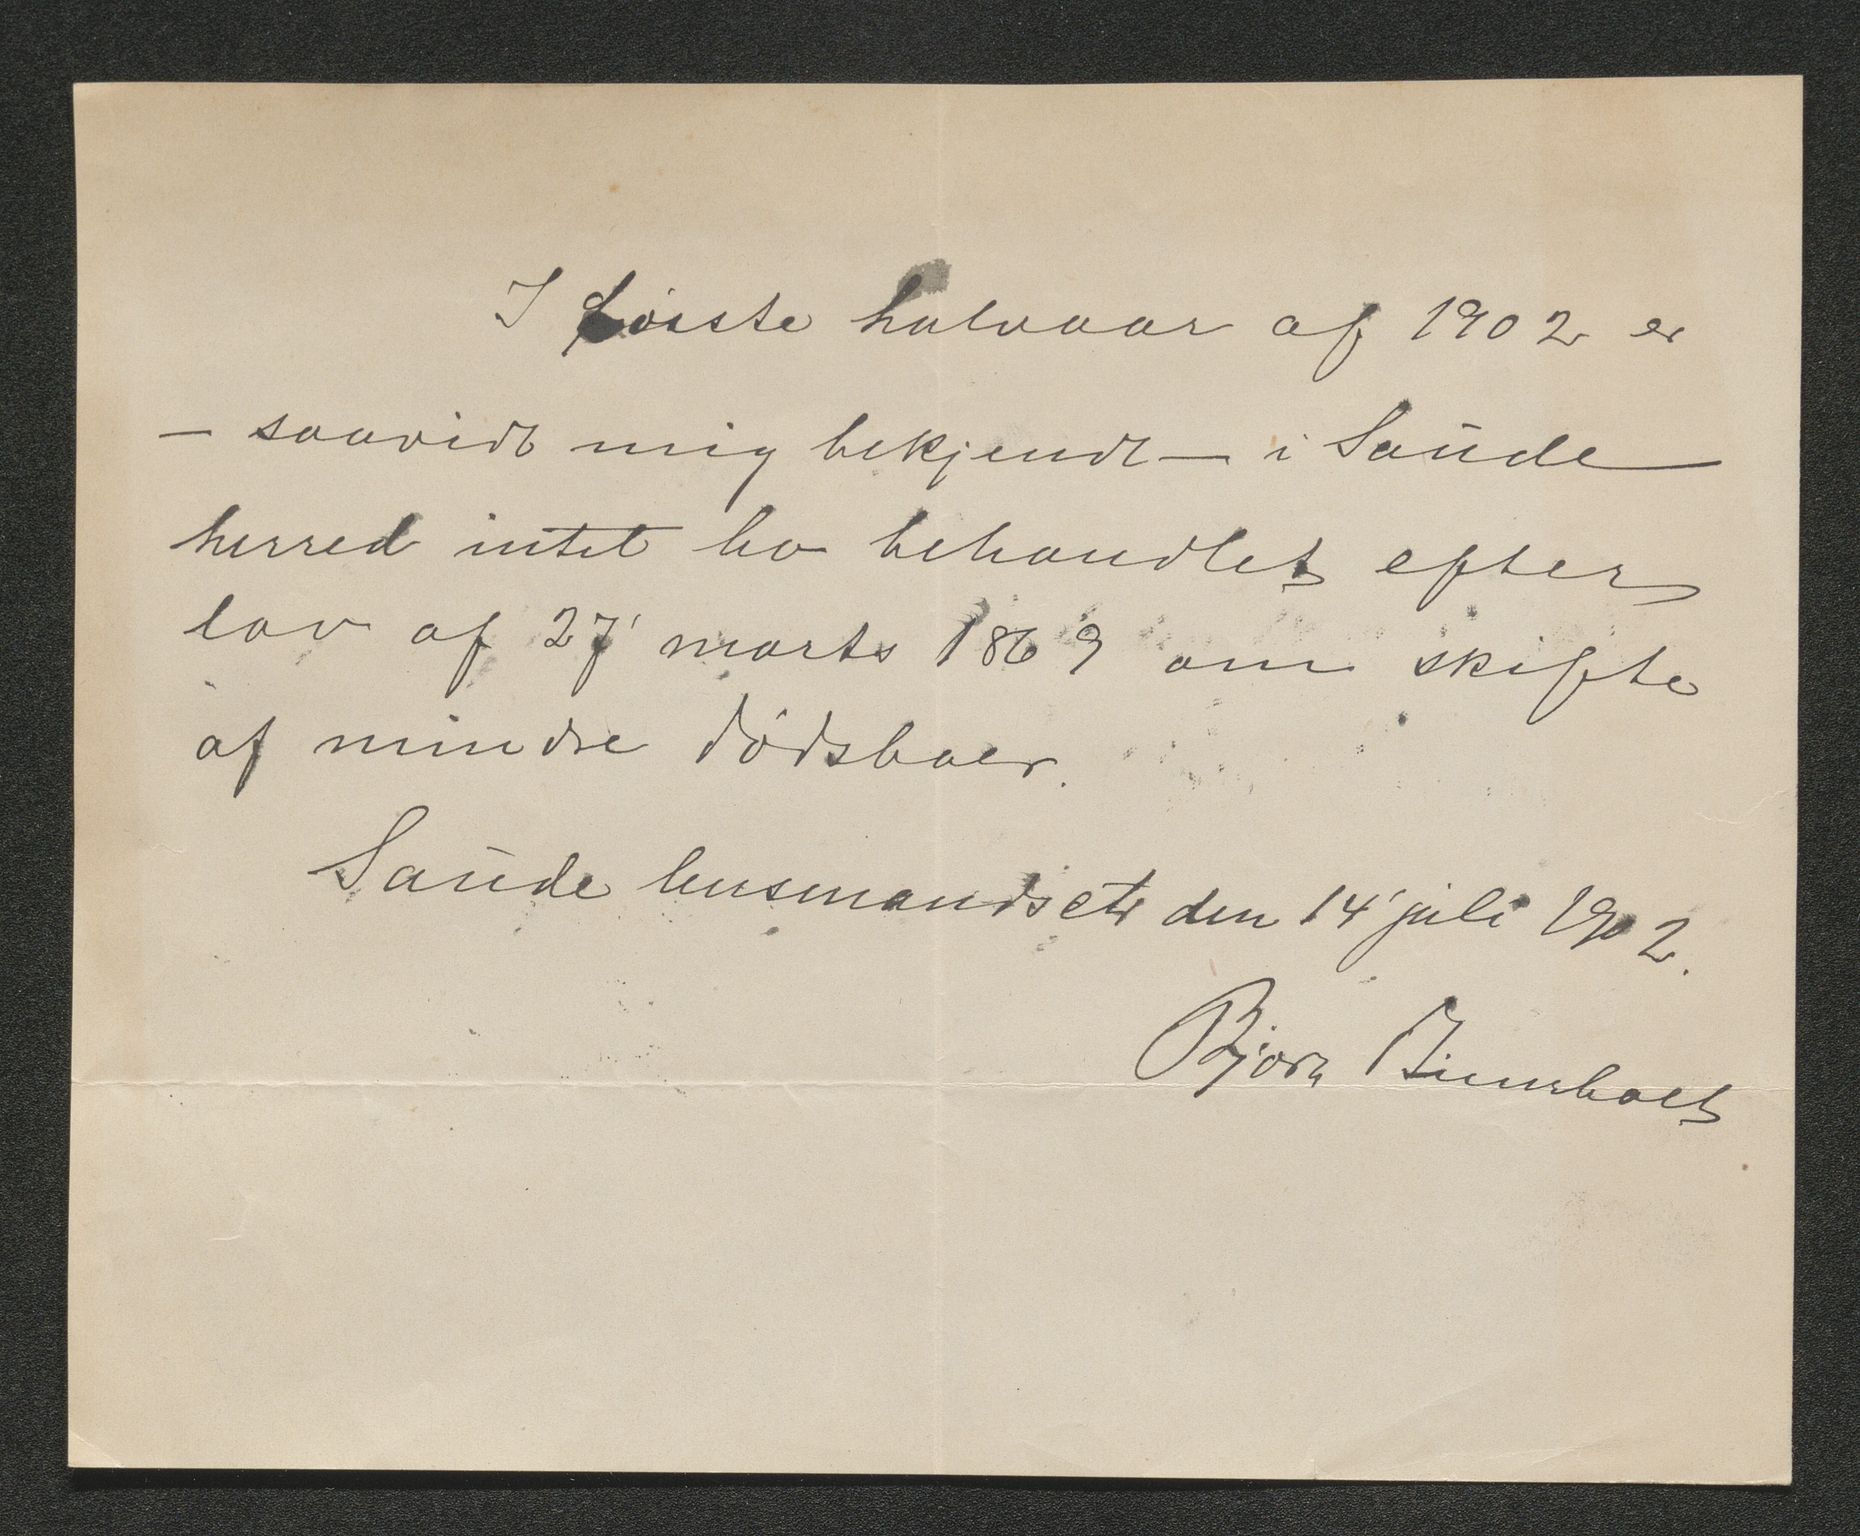 I første halvaar af 1902 er
– saavidt mig bekjendt – i Saude
herred intet bo behandlet efter
lov af 27' marts 1869 om skifte
af mindre dødsboer.
Saude lensmandsetr den 14' juli 1902.
Bjørn